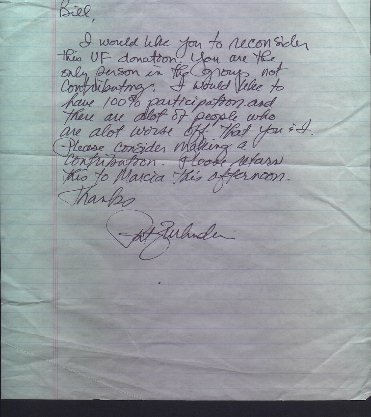 Bill,
I would like you to reconsider
this UF donation. You are the
only person in the group not
contributing. I would like to
have 100% participation and
there are alot of people who
are alot worse off that you & I.
Please consider making a
contribution. Please return
this to Marcia this afternoon.
Thanks